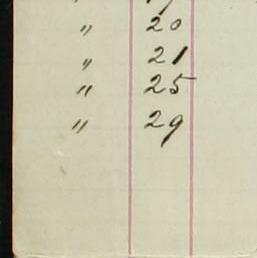 " 20
" 21
" 25
" 29